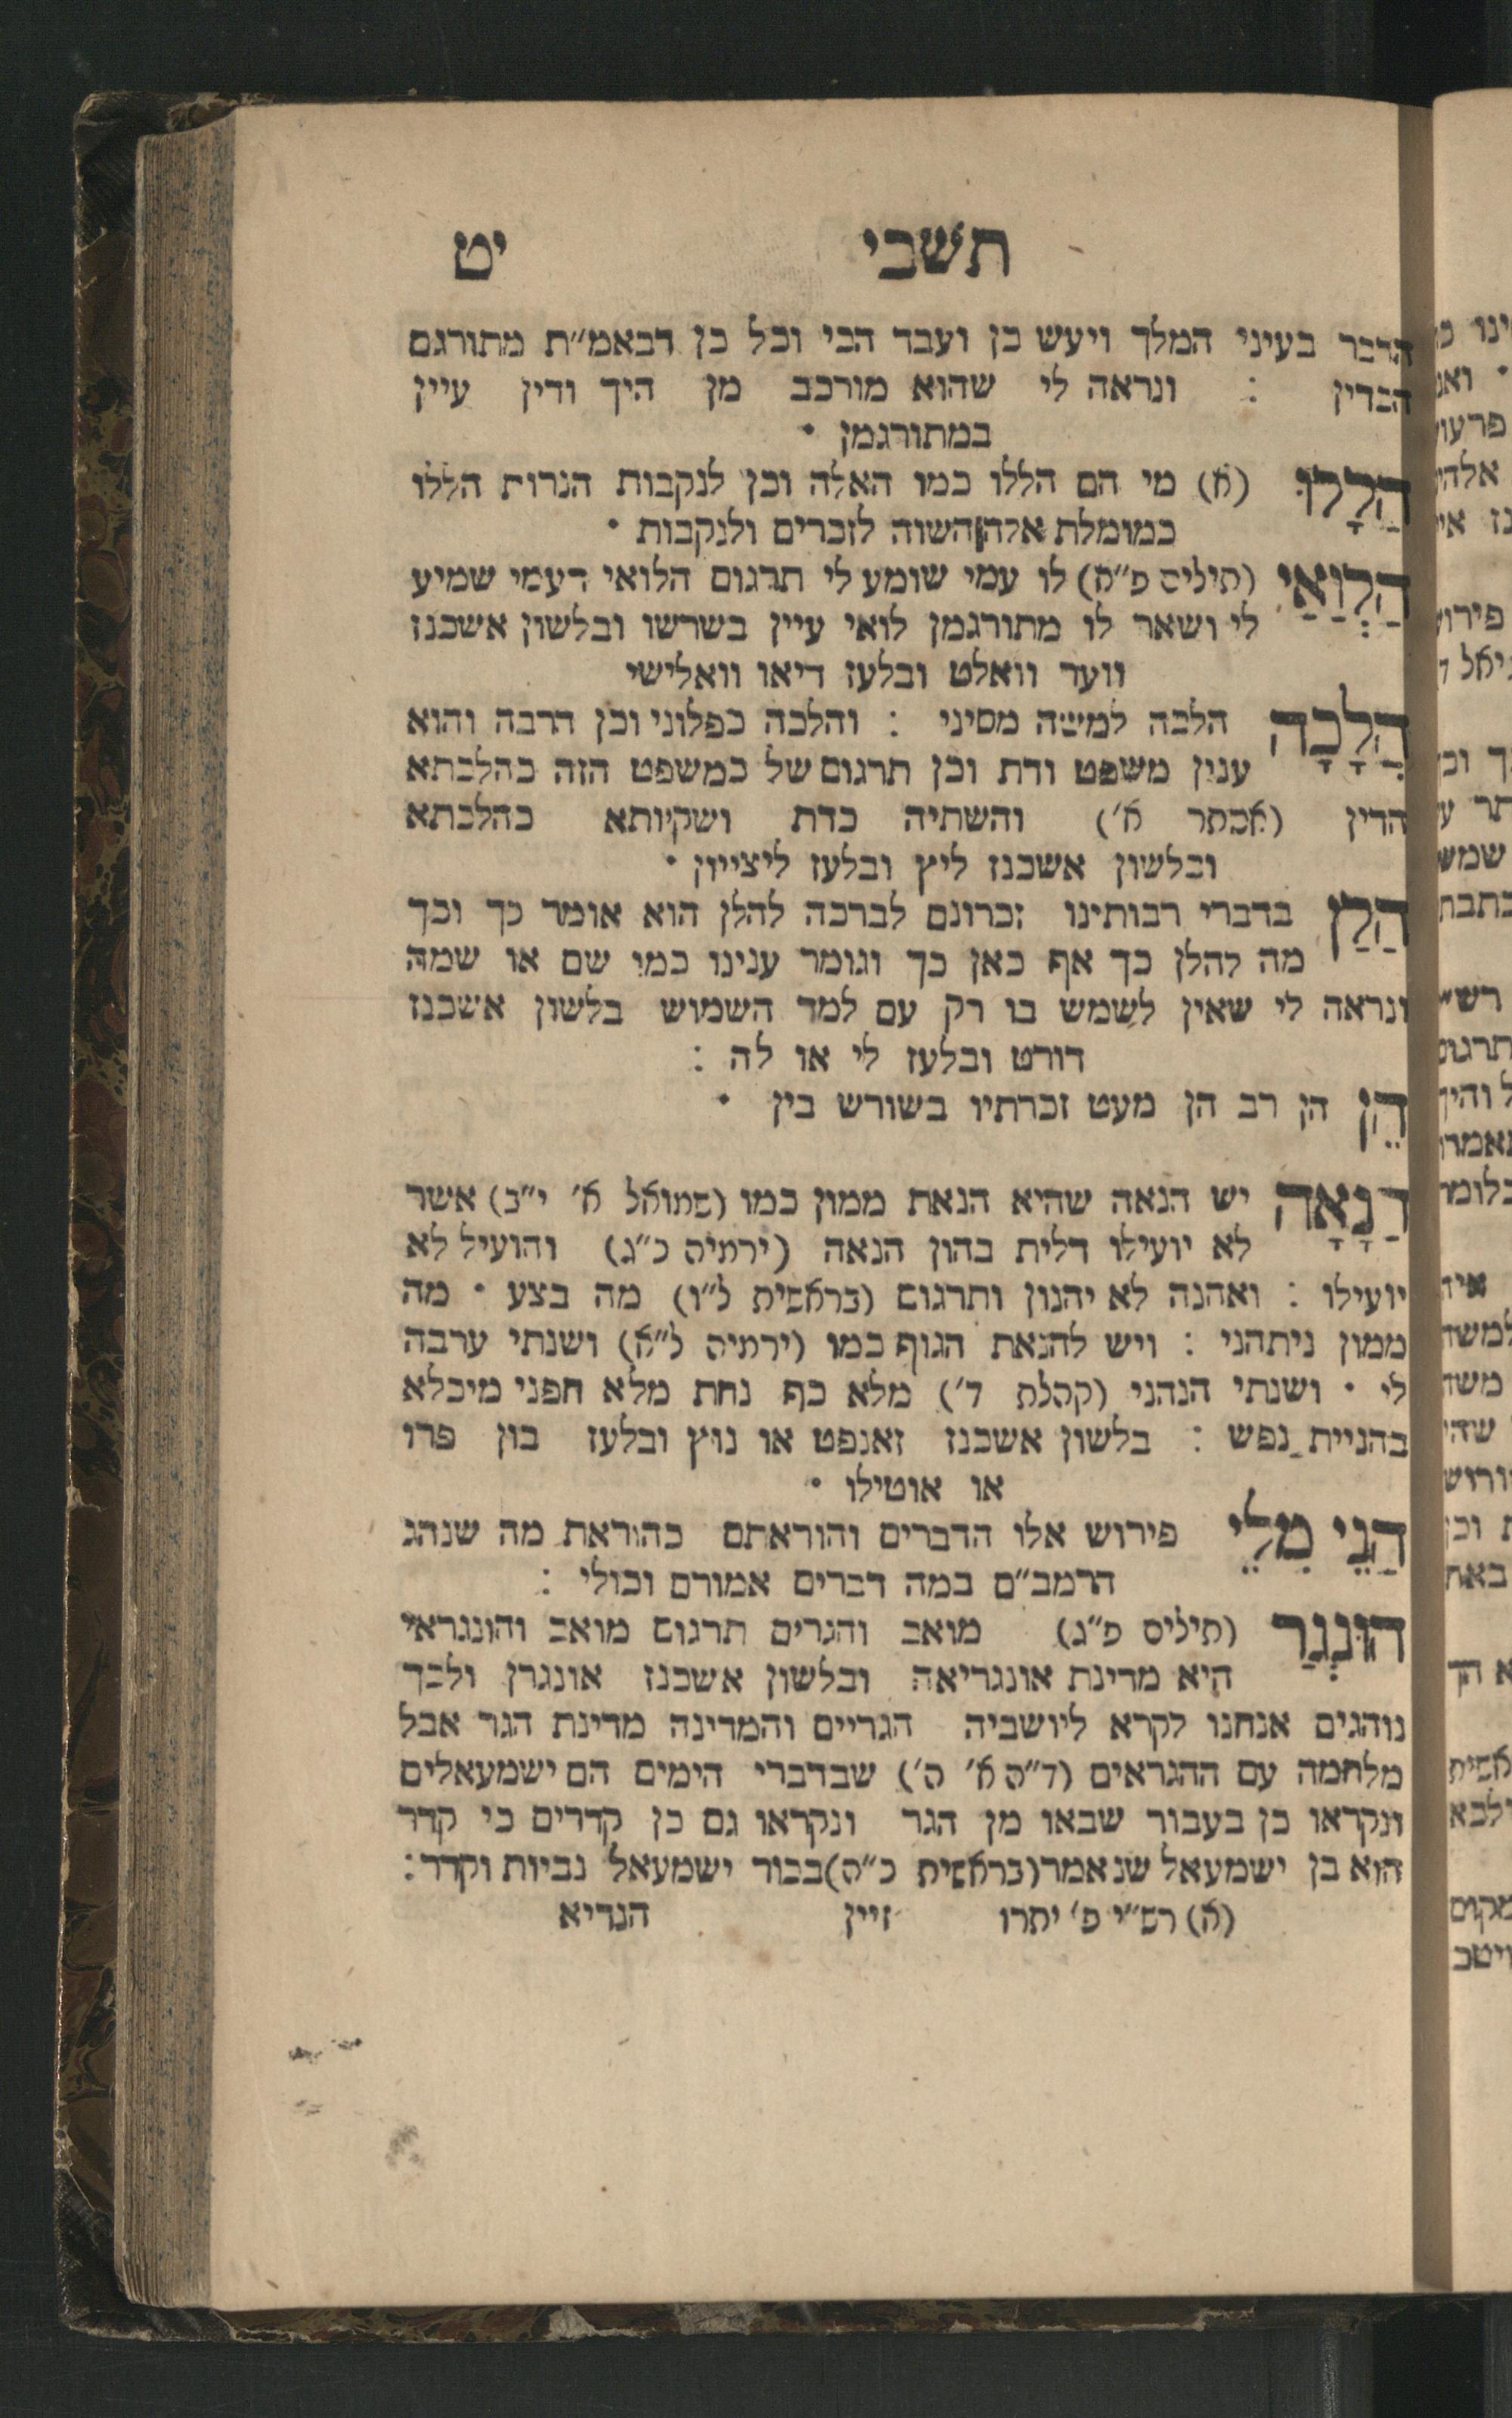 תשבי יט
הדבר בעיני המלך ויעש כן ועבד הכי וכל כן דבאמ״ת מתורגם
הכדין : ונראה לי שהוא מורכב מן היך ודין עיין
במתורגמן •
הַלָלוּ (א) מי הם הללו כמו האלה וכן לנקבות הנרות הללו
כמו מלת אלה השוה לזכרים ולנקבות •
הַלְוַאַי (תילים פ״א) לו עמי שומע לי תרגום הלואי דעמי שמיע
לי ושאר לו מתורגמן לואי עיין בשרשו ובלשון אשכנז
ווער וואלט ובלעז דיאו וואלישי
הֲלָכָה הלכה למשה מסיני : והלכה כפלוני וכן הרבה והוא
ענין משפט ודת וכן תרגום של כמשפט הזה כהלכתא
הדין (אסתר א׳) והשתיה כדת ושקיותא כהלכתא
ובלשון אשכנז ליץ ובלעז ליצייון •
הַלַן בדברי רבותינו זכרונם לברכה להלן הוא אומר כך וכך
מה להלן כך אף כאן כך וגומר ענינו כמו שם או שמה
ונראה לי שאין לשמש בו רק עם למד השמוש בלשון אשכנז
דורט ובלעז לי או לה :
הֵן הן רב הן מעט זכרתיו בשורש בין •
הַנָאָה יש הנאה שהיא הנאת ממון כמו (שמואל א׳ י״ב) אשר
לא יועילו דלית בהון הנאה (ירמיה כ״ג) והועיל לא
יועילו : ואהנה לא יהנון ותרגום (בראשית ל״ו) מה בצע • מה
ממון ניתהני : ויש להנאת הגוף כמו (ירמיה ל״א) ושנתי ערבה
לי • ושנתי הנהני (קהלת ד׳) מלא כף נחת מלא חפני מיכלא
בהניית נפש : בלשון אשכנז זאנפט או נוץ ובלעז בון פרו
או אוטילו •
הַנֵי מִלֵי פירוש אלו הדברים והוראתם כהוראת מה שנהג
הרמב״ם במה דברים אמורם וכולי :
הוּנְגַר (תילים פ״ג) מואב והגרים תרגום מואב והונגראי
היא מדינת אונגריאה ובלשון אשכנז אונגרן ולכך
נוהגים אנחנו לקרא ליושביה הגריים והמדינה מדינת הגר אבל
מלחמה עם ההגראים (ד״ה א׳ ה׳) שבדברי הימים הם ישמעאלים
ונקראו כן בעבור שבאו מן הגר ונקראו גם כן קדרים כי קדר
הוא בן ישמעאל שנאמר (בראשית כ״ה) בכור ישמעאל נביות וקדר :
(א) רש״י פ׳ יתרו זיין הנדיא